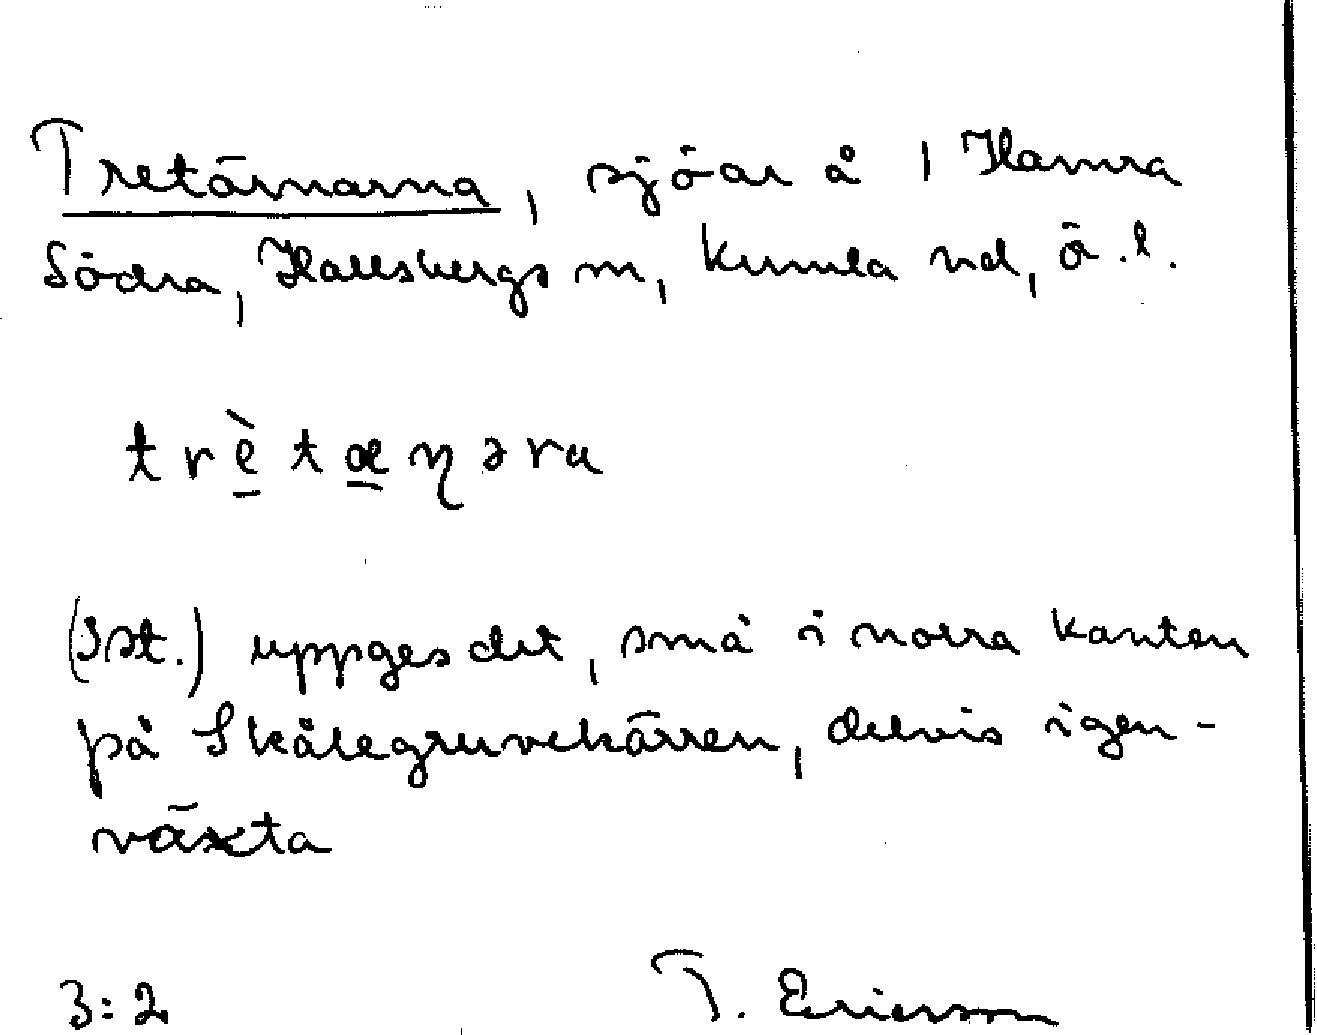 Tretärnarna, sjöar å 1 Hamra
Södra, Hallsbergs sn, Kumla hd, ö.l.
trètæɳəra
(Sst.) uppges det, små i norra kanten
på Skålegruvekärren, delvis igen-
växta
3:2 T. Ericsson